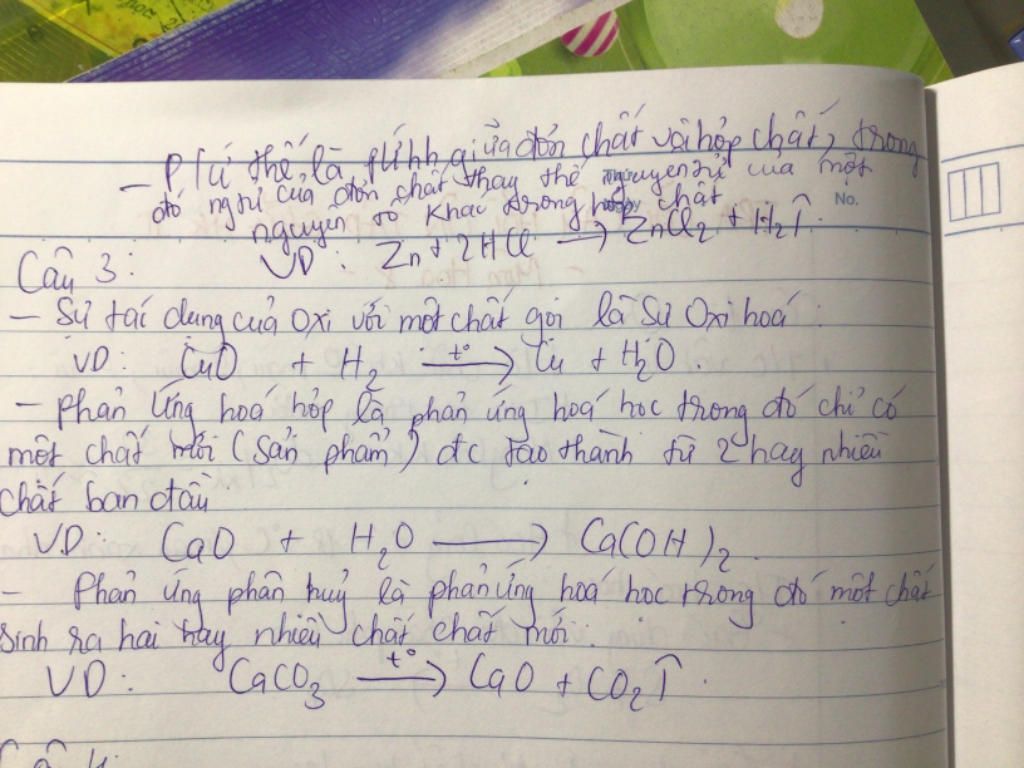 - PƯ thế, là pứ hh giữa đơn chất và hợp chất, trong
đó ngtử của đơn chất thay thế nguyên tử của một
nguyên tố khác trong hợp chất
No.
VD: Zn + 2HCl → ZnCl₂ + H₂↑.
Câu 3:
- Sự tác dụng của Oxi với một chất gọi là sự Oxi hoá.
VD: CuO + H₂ —t°→ Cu + H₂O.
- phản ứng hoá hợp là phản ứng hoá học trong đó chỉ có
một chất mới (sản phẩm) đc tạo thành từ 2 hay nhiều
chất ban đầu
VD: CaO + H₂O → Ca(OH)₂.
- Phản ứng phân huỷ là phản ứng hoá học trong đó một chất
sinh ra hai hay nhiều chất chất mới.
VD: CaCO₃ —t°→ CaO + CO₂↑.